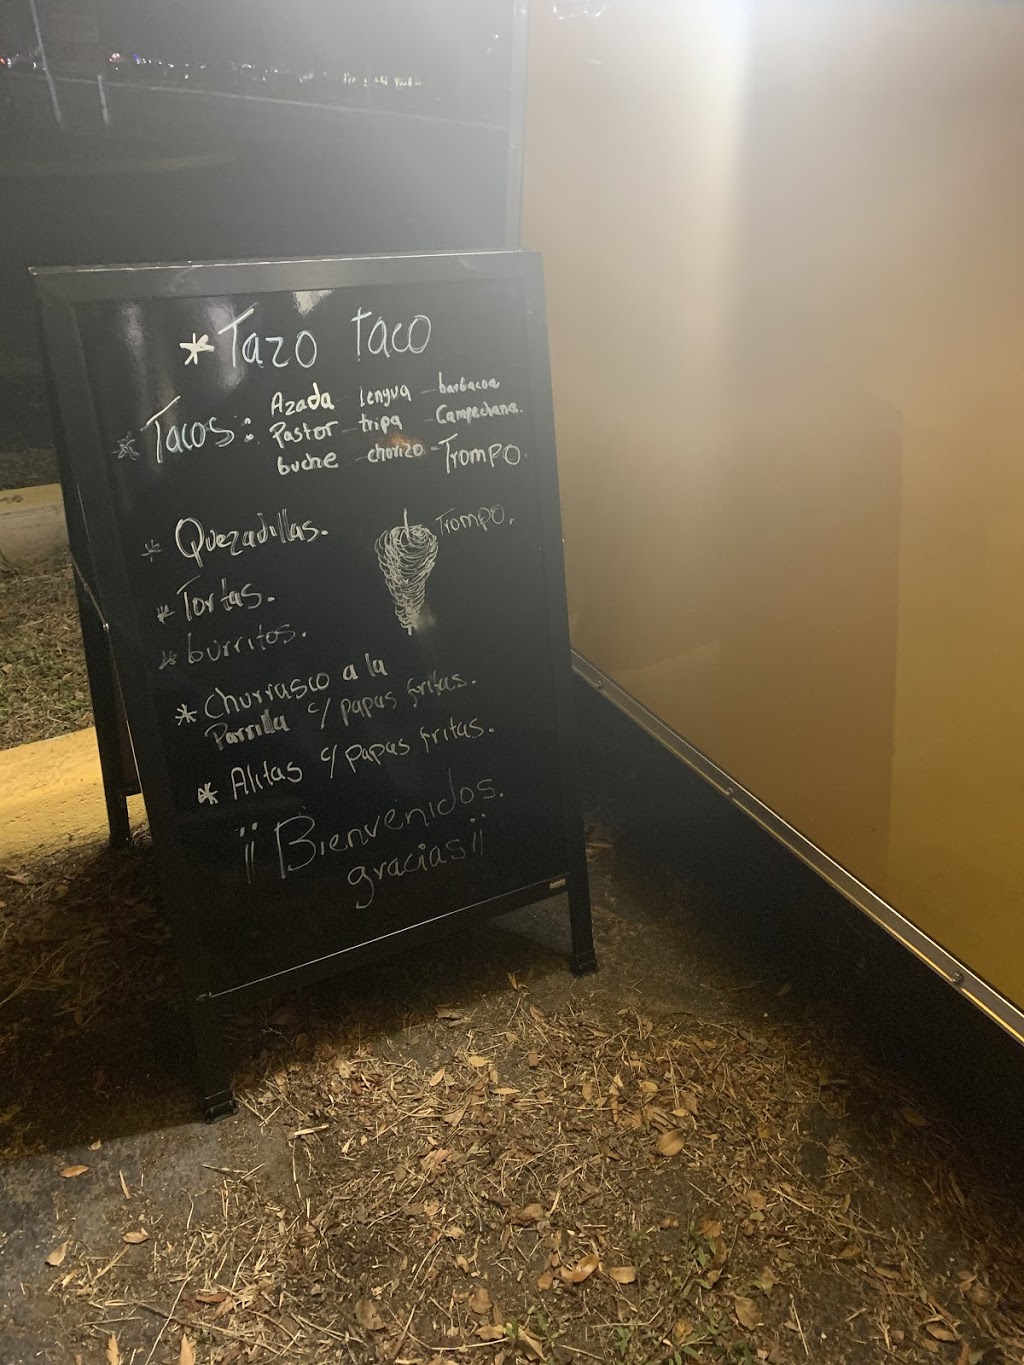 * Tazo taco
* Tacos: Azada - lengua - barbacoa
Pastor - tripa - Campechana.
buche - chorizo - Trompo.
* Quezadillas.
Trompo.
* Tortas.
* burritos.
* Churrasco a la
Parrilla c/ papas fritas.
* Alitas c/ papas fritas.
¡¡Bienvenidos.
gracias¡¡